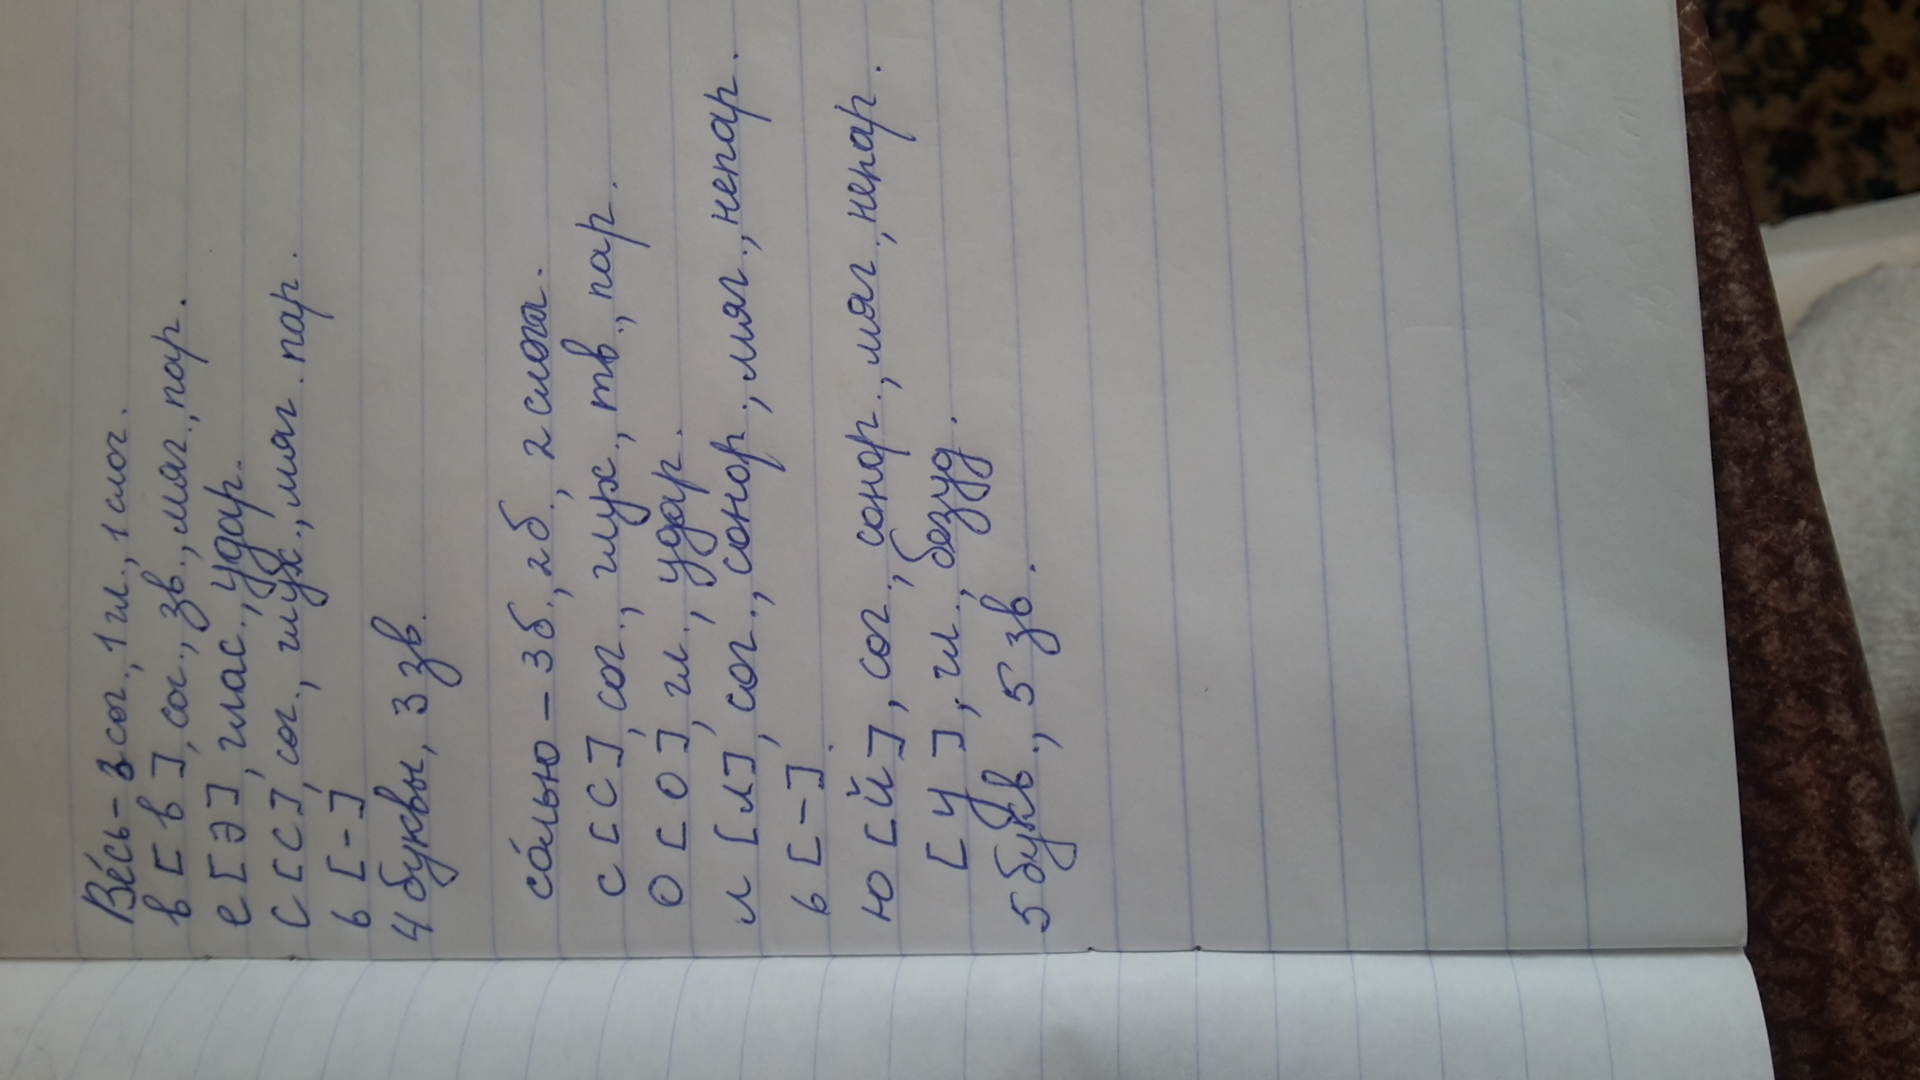 Ве́сь – 3 сог., 1 гл., 1 слог.
в [ в ], сог., зв., мяг., пар.
е [ э ], глас., удар.
с [ с ], сог., глух., мяг. пар.
ь [ – ]
4 буквы, 3 зв.
со́лью – 3 б., 2 б., 2 слога.
с [ с ], сог., глух., тв., пар.
о [ о ], гл., удар.
л [ л ], сог., сонор., мяг., непар.
ь [ – ].
ю [ й ], сог., сонор., мяг., непар.
[ у ], гл., безуд.
5 букв., 5 зв.